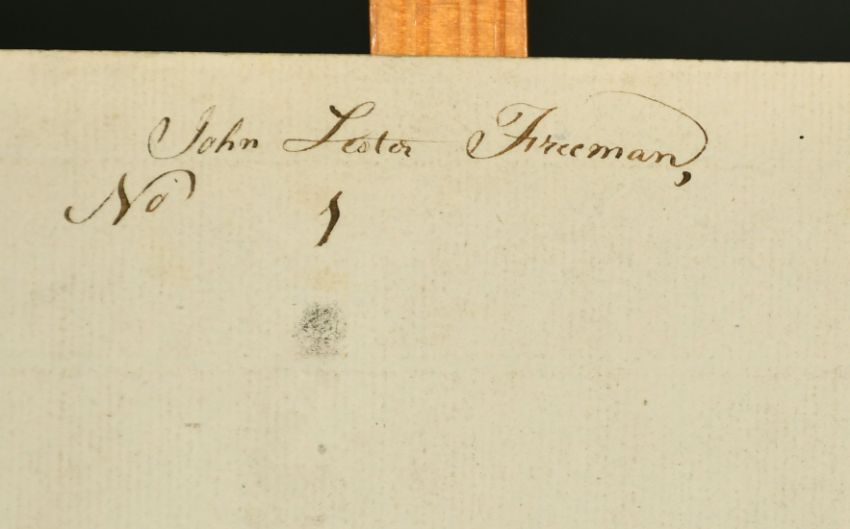 John Lester Freeman,
No 1